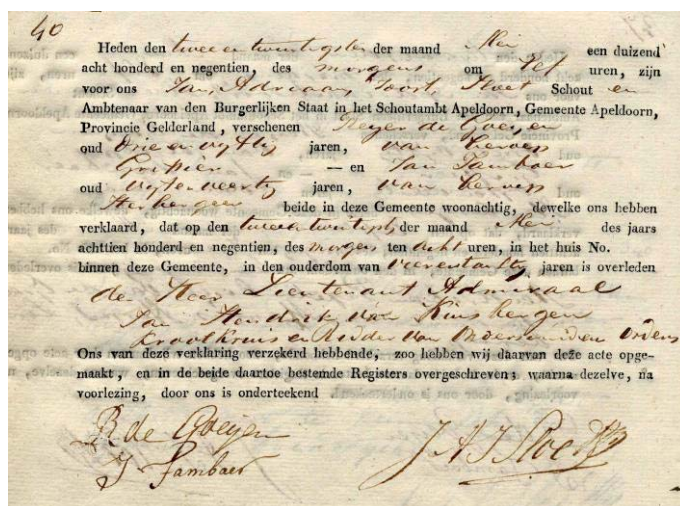 40
Heden den twee en twintigsten der maand Mei een duizend
acht honderd en negentien, des morgens om elf uren, zijn
voor ons Jan, Adriaan, Joost, Sloet Schout en
Ambtenaar van den Burgerlijken Staat in het Schoutambt Apeldoorn, Gemeente Apeldoorn,
Provincie Gelderland, verschenen de Goeijen
oud drie en vyftig jaren, van beroep
Griffier — en Jan Tamboer
oud vyf en veertig jaren, van beroep
beide in deze Gemeente woonachtig, dewelke ons hebben
verklaard, dat op den twee en twintigste der maand Mei des jaars
achttien honderd en negentien, des morgens ten acht uren, in het huis No.
binnen deze Gemeente, in den ouderdom van vier en tachtig jaren is overleden
de Heer Lieutenant Admiraal
Jan Hendrik van Kinsbergen
Kruis en Ridder van onderscheiden Ordens
Ons van deze verklaring verzekerd hebbende, zoo hebben wij daarvan deze acte opge-
maakt, en in de beide daartoe bestemde Registers overgeschreven; waarna dezelve, na
voorlezing, door ons is onderteekend
R de Goeijen
J Tamboer
J A J Sloet